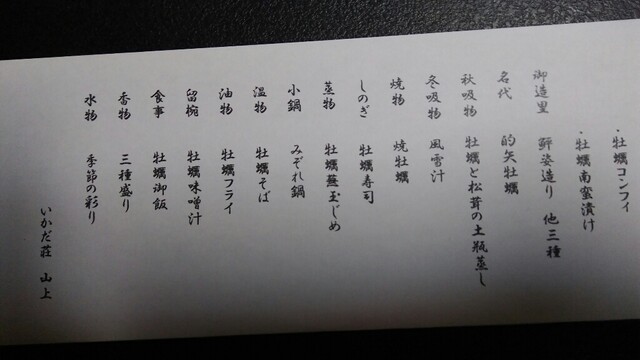 ・牡蠣コンフィ
・牡蠣南蛮漬け
御造里 鮃姿造り 他三種
名代 的矢牡蠣
秋吸物 牡蠣と松茸の土瓶蒸し
冬吸物 風雪汁
焼物 焼牡蠣
しのぎ 牡蠣寿司
蒸物 牡蠣蕪玉じめ
小鍋 みぞれ鍋
温物 牡蠣そば
油物 牡蠣フライ
留椀 牡蠣味噌汁
食事 牡蠣御飯
香物 三種盛り
水物 季節の彩り
いかだ荘 山上